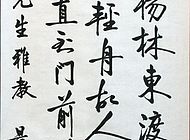 杨林東渡
輕舟故人
直到门前
先生雅教